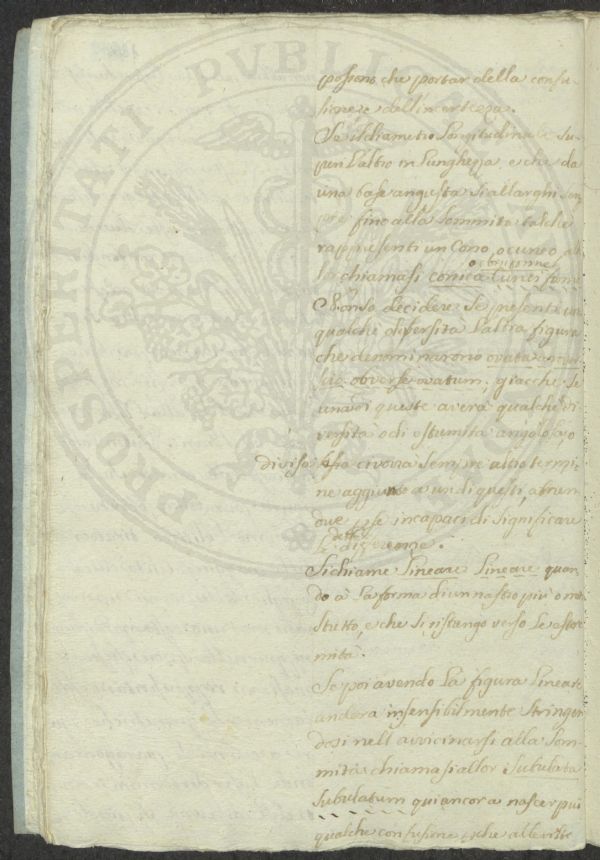 PROSPERITATI PVBLICAE
possono che portar della confu-
sione, e dell'incertezza.
Se il diametro Longitudinale su-
peri l'altro in lunghezza, e che da
una base angusta si allarghi sem
pre fino alla sommità talche
rappresenti un Cono, o cuneo, al
chiamasi conica
decidere se presenti un
qualche diversità l'altra figura
che denominarono ovata
obverse ovatum. giacche se
una di queste averà qualche di
versità o di estumità angolosa o
diviso sempre altro termi
ne aggiunto a un di questi,
due per se incapaci di significare
le dette
Si chiama Lineare Lineare quan
do à la forma di un nastro più o men
stretto, e che si ristango verso le estre
mità.
Se poi avendo la figura Lineare
anderà insensibilmente stringen
dosi nell'avvicinarsi alla som
mità chiamasi allor Subulata
Subulatum qui ancora nascer può
qualche confusione,